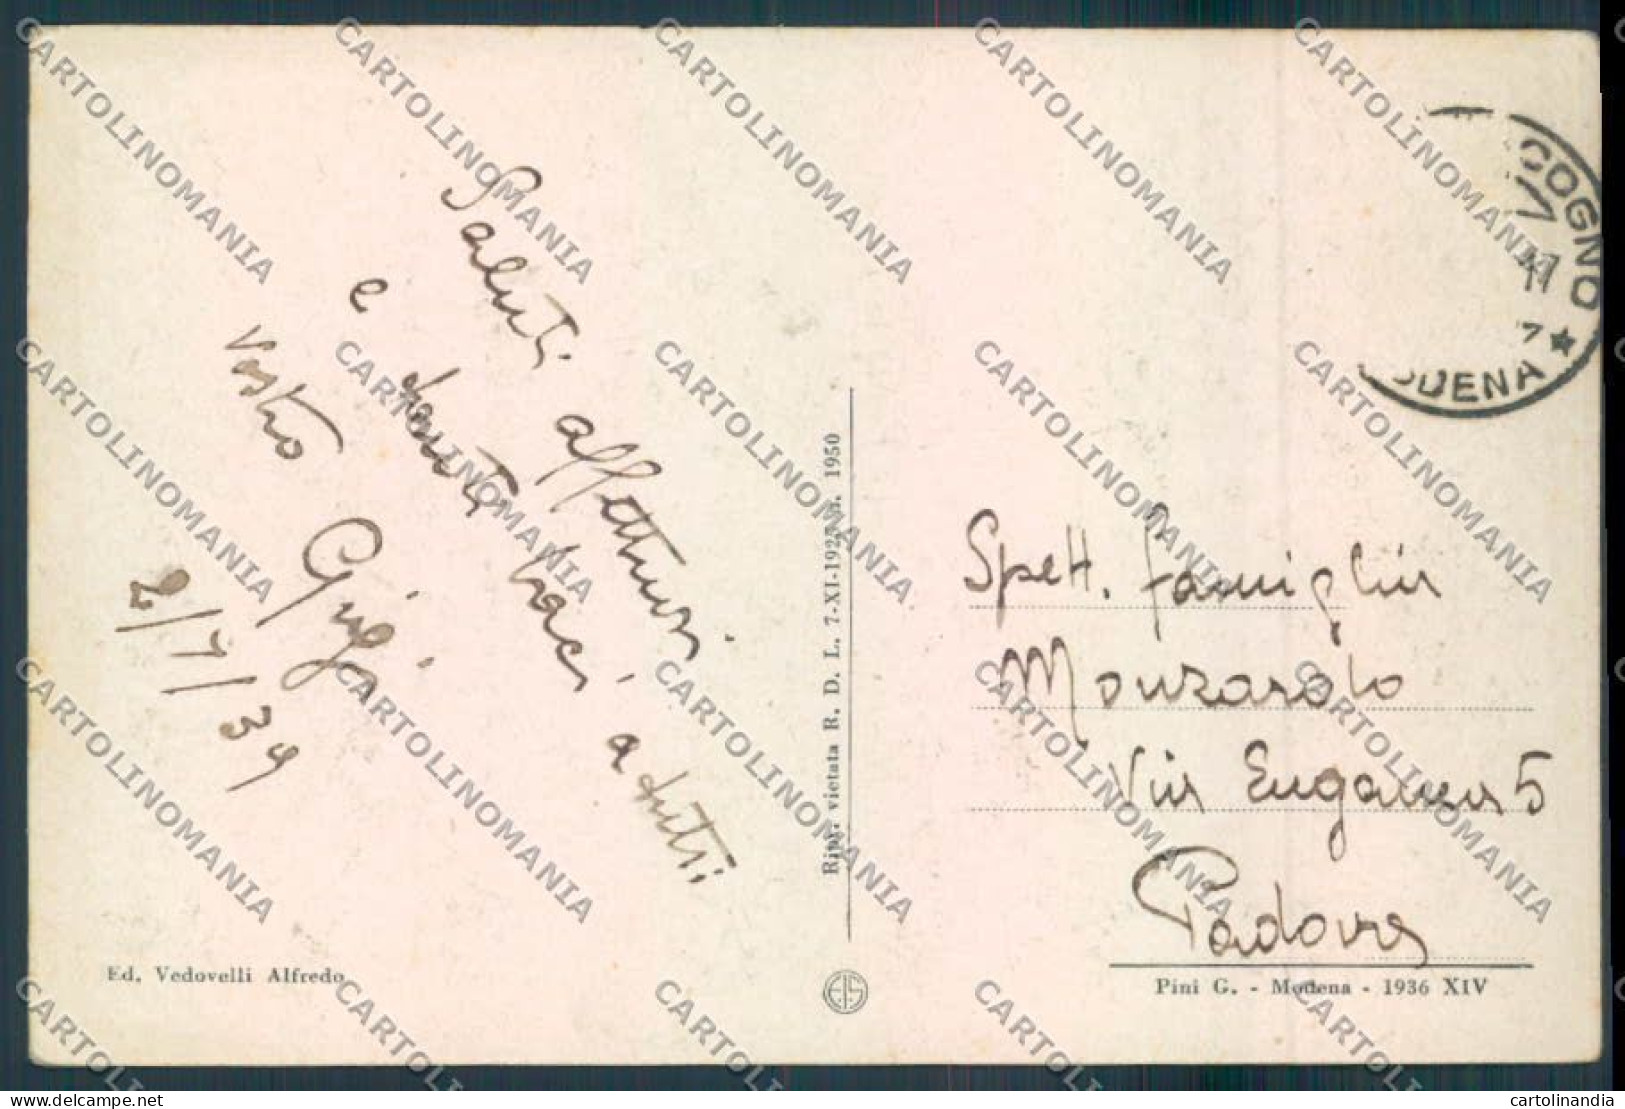 Saluti affettuosi
e tanti baci a tutti
Vostro
Gigi
2/7/39
Ed. Vedovelli Alfredo
Ripr. vietata R. D. L. 7-XI-1927 N. 1950
EIS
COGNO
MODENA
Spett. Famiglia
Monzarolo
Via Euganea 5
Padova
Pini G. - Modena - 1936 XIV
CARTOLINOMANIA
cartolinandia